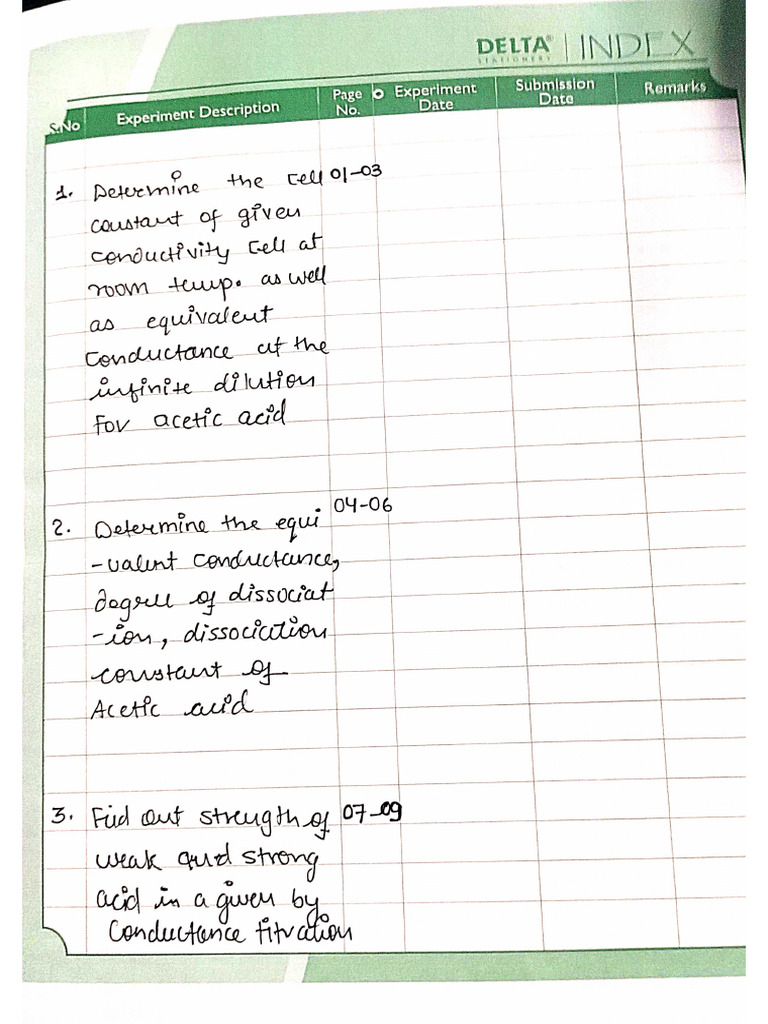 DELTA® INDEX
STATIONERY
S.No Experiment Description Page No. Experiment Date Submission Date Remarks
1. Determine the cell 01-03
constant of given
conductivity cell at
room temp. as well
as equivalent
conductance at the
infinite dilution
For acetic acid
2. Determine the equi 04-06
-valent conductance,
degree of dissociat
-ion, dissociation
constant of
Acetic acid
3. Find out strength of 07-09
weak and strong
acid in a given by
Conductance titration